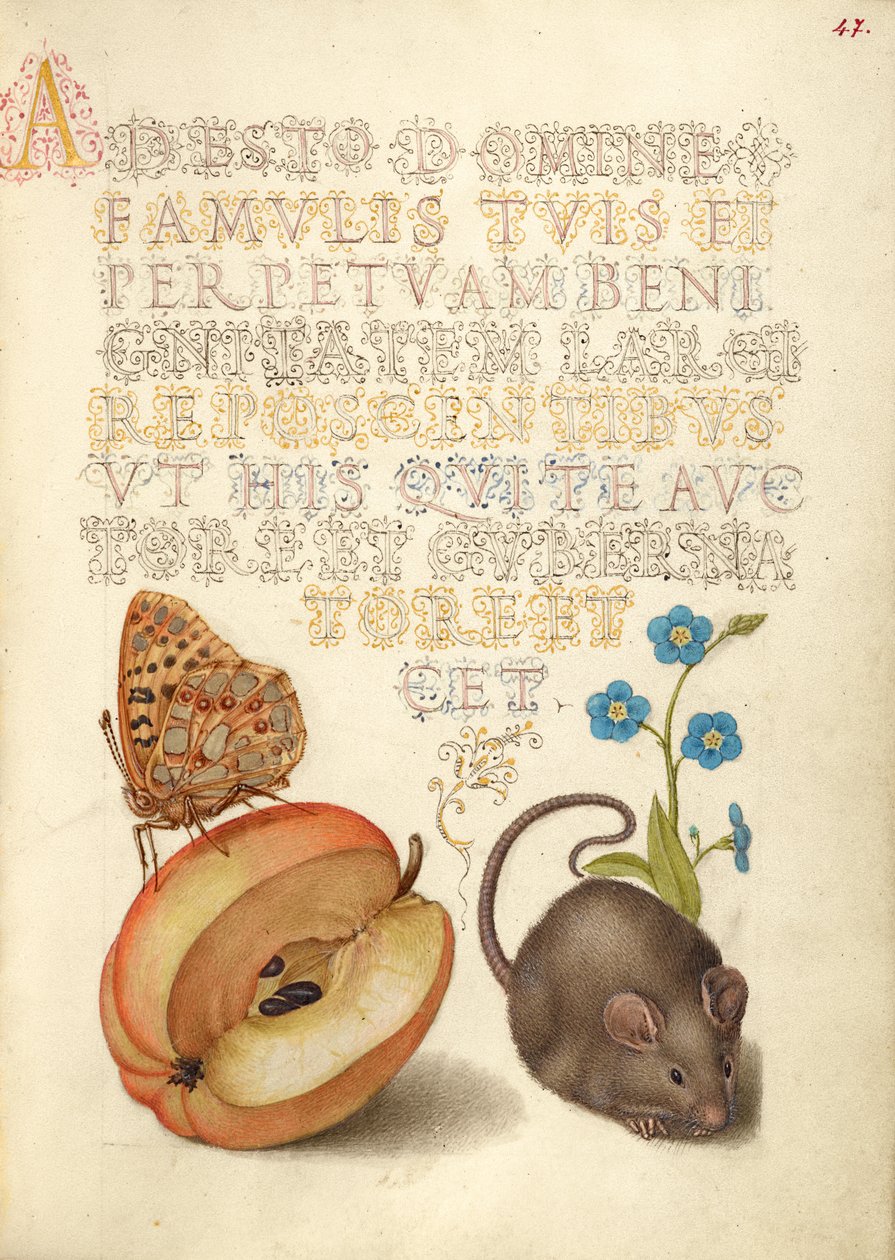 47.
ADESTO DOMINE
FAMVLIS TVIS ET
PERPETVAM BENI
GNITATEM LARGI
REPOSCENTIBVS
VT HIS QVI TE AVC
TORE ET GVBERNA
TORE ET
CET